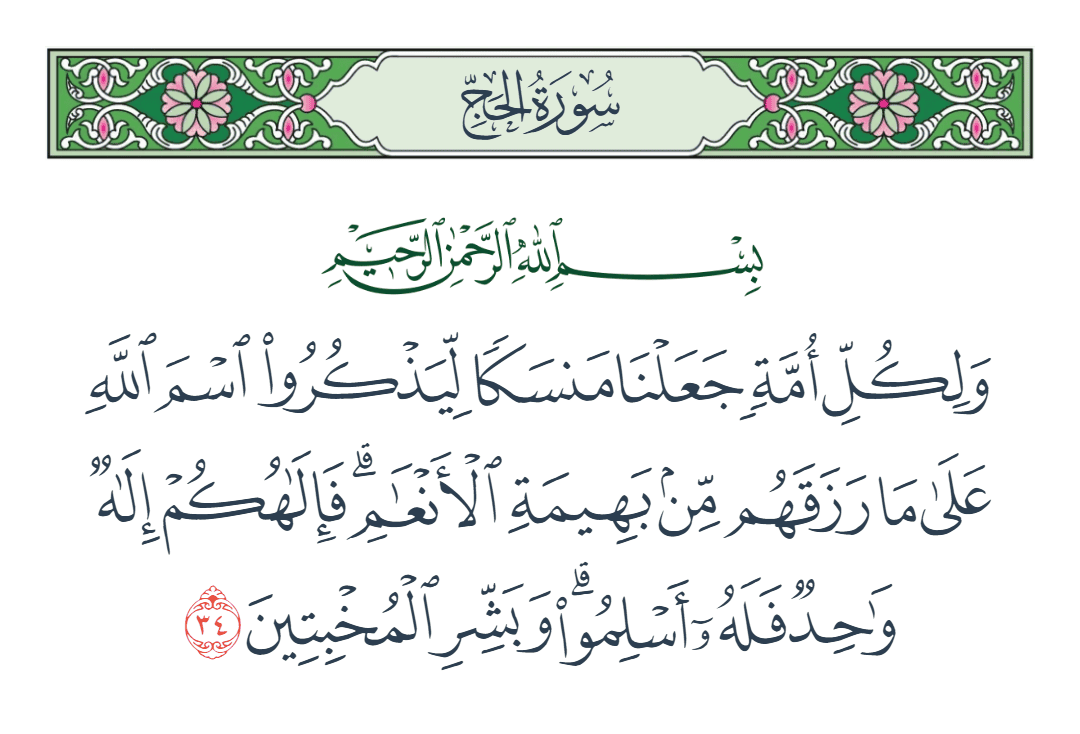 سُورَةُ الحَجِّ
بِسْمِ ٱللَّهِ ٱلرَّحْمَٰنِ ٱلرَّحِيمِ
وَلِكُلِّ أُمَّةٍ جَعَلْنَا مَنسَكًا لِّيَذْكُرُوا۟ ٱسْمَ ٱللَّهِ
عَلَىٰ مَا رَزَقَهُم مِّنۢ بَهِيمَةِ ٱلْأَنْعَٰمِ ۗ فَإِلَٰهُكُمْ إِلَٰهٌ
وَٰحِدٌ فَلَهُۥٓ أَسْلِمُوا۟ ۗ وَبَشِّرِ ٱلْمُخْبِتِينَ ٣٤